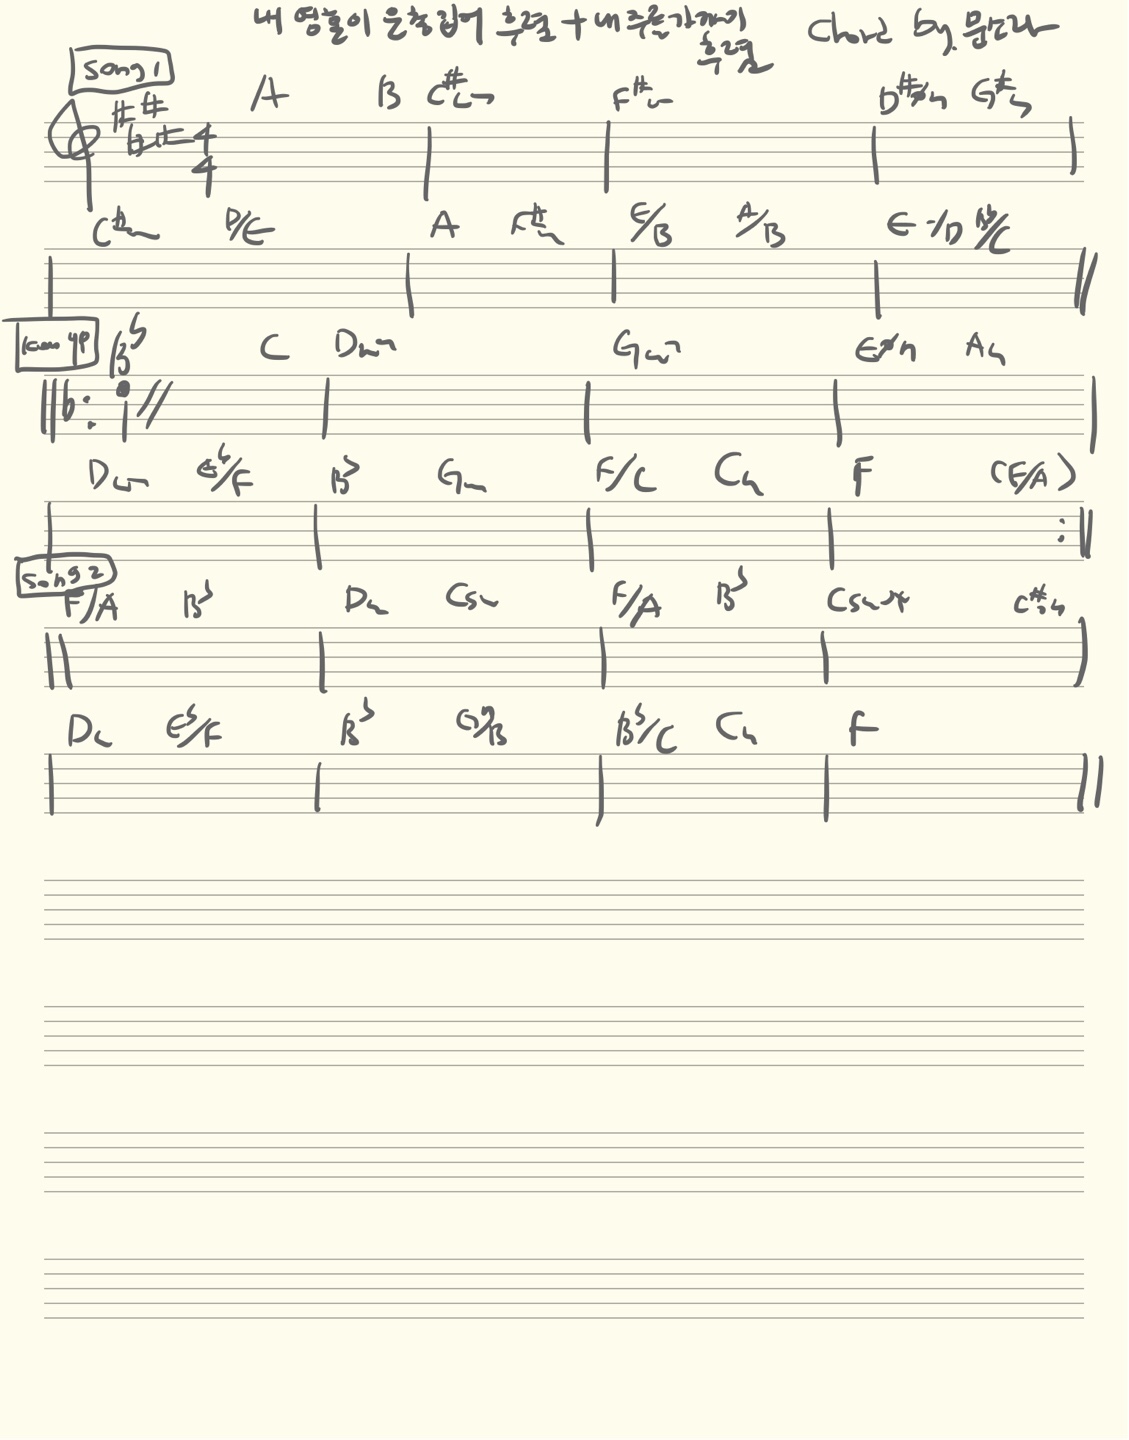 내 영혼이 은총입어 후렴 + 내 주를 가까이 Chord by.
후렴
Song 1
A B C#m7 F#m D#ø7 G#7
4
4
C#m D/E A F#m E/B A/B E -/D Bb/C
Key up Bb C Dm7 Gm7 Eø7 A7
Dm Eb/F Bb Gm F/C C7 F (F/A)
Song 2
F/A Bb Dm Csus F/A Bb Csus4 C#°7
Dm Eb/F Bb Bb/C C7 F